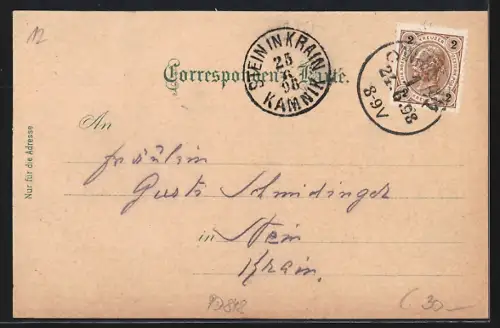 12
STEIN IN KRAIN
25
6
98
KAMNIK
2 KREUZER 2
24.6.98
8-9V
Correspondenz-Karte.
Nur für die Adresse
An
Fräulein
Gusti Schmidinger
in Stein
Krain.
30-